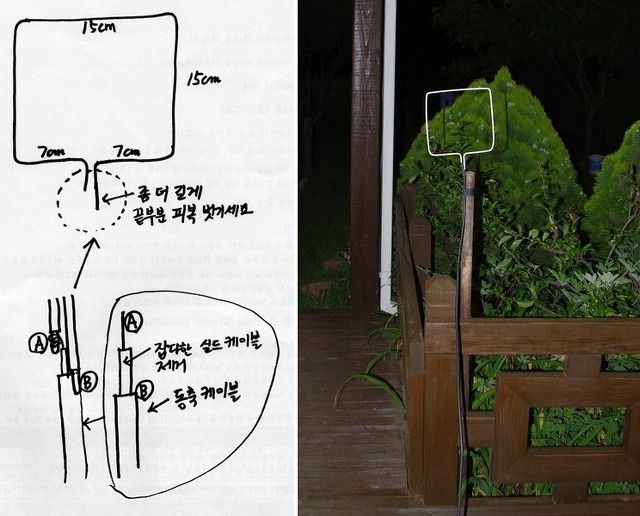 15cm
15cm
7cm
7cm
좀 더 길게
끝부분 피복 벗기세요
A
A
잡다한 쉴드 케이블
제거
B
B
동축 케이블